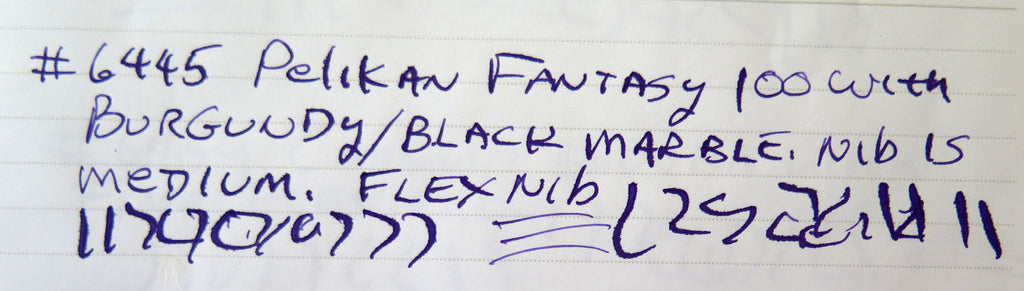 #6445 Pelikan Fantasy 100 with
Burgundy/Black Marble. Nib is
medium. Flex Nib